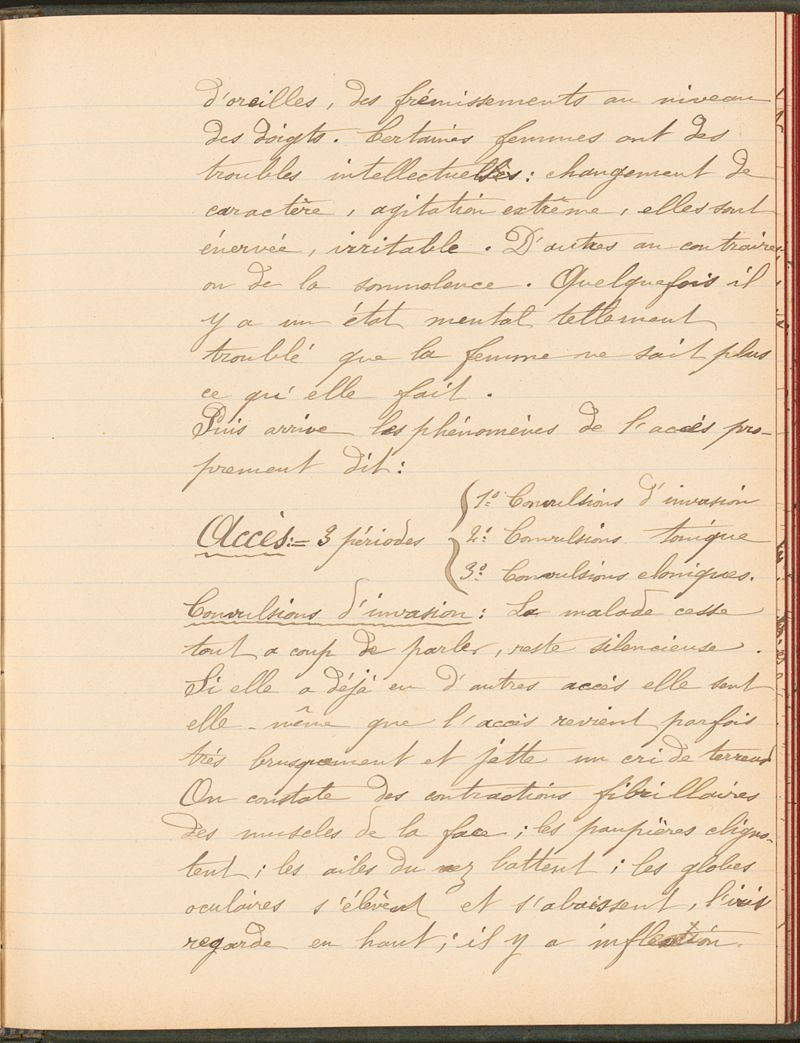 d'oreilles, des frémissements au niveau
des doigts. Certaines femmes ont des
troubles intellectuels : changement de
caractère, agitation extrême, elles sont
énervée, irritable. D'autres au contraire
on de la somnolence. Quelquefois il
y a un état mental tellement
troublé que la femme ne sait plus
ce qu'elle fait.
Puis arrive les phénomènes de l'accés pro-
prement dit :
1º Convulsions d'invasion
Accès := 3 périodes 2º Convulsions tonique
3º Convulsions cloniques.
Convulsions d'invasion : La malade cesse
tout a coup de parler, reste silencieuse.
Si elle a déjà eu d'autres accés elle sent
elle-même que l'accès revient parfois
trés brusquement et jette un cri de terreur
On constate des contractions fibrillaires
des muscles de la face ; les paupières cligno-
tent ; les ailes du nez battent ; les globes
oculaires s'élèvent et s'abaissent, l'iris
regarde en haut ; il y a